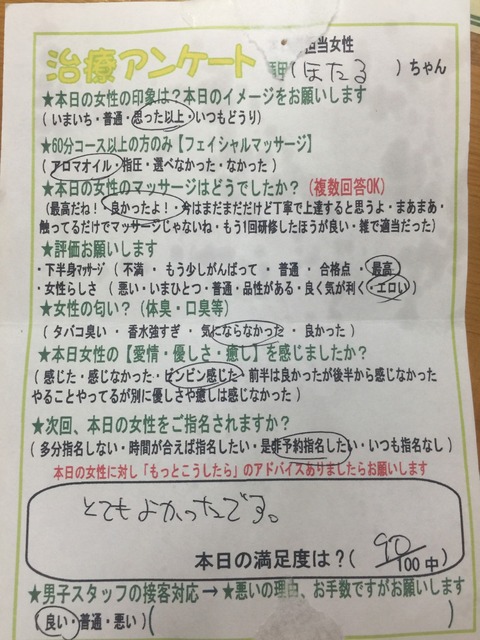 治療アンケート
担当女性
(ほたる)ちゃん
★本日の女性の印象は?本日のイメージをお願いします
(いまいち・普通・思った以上・いつもどうり)
★60分コース以上の方のみ【フェイシャルマッサージ】
(アロマオイル・指圧・選べなかった・なかった)
★本日の女性のマッサージはどうでしたか?(複数回答OK)
(最高だね!・良かったよ!・今はまだまだだけど丁寧で上達すると思うよ・まあまあ・
触ってるだけでマッサージじゃないね・もう1回研修したほうが良い・雑で適当だった)
★評価お願いします
・下半身マッサージ(不満 ・ もう少しがんばって ・ 普通 ・ 合格点 ・ 最高)
・女性らしさ(悪い・いまひとつ・普通・品性がある・良く気が利く・エロい)
★女性の匂い?(体臭・口臭等)
(タバコ臭い ・ 香水強すぎ ・ 気にならなかった ・ 良かった)
★本日女性の【愛情・優しさ・癒し】を感じましたか?
(感じた・感じなかった・ビンビン感じた・前半は良かったが後半から感じなかった
やることやってるが別に優しさや癒しは感じなかった)
★次回、本日の女性をご指名されますか?
(多分指名しない・時間が合えば指名したい・是非予約指名したい・いつも指名なし)
本日の女性に対し「もっとこうしたら」のアドバイスありましたらお願いします
とてもよかったです。
本日の満足度は?(90/100中)
★男子スタッフの接客対応→★悪いの理由、お手数ですがお願いします
(良い・普通・悪い)( )